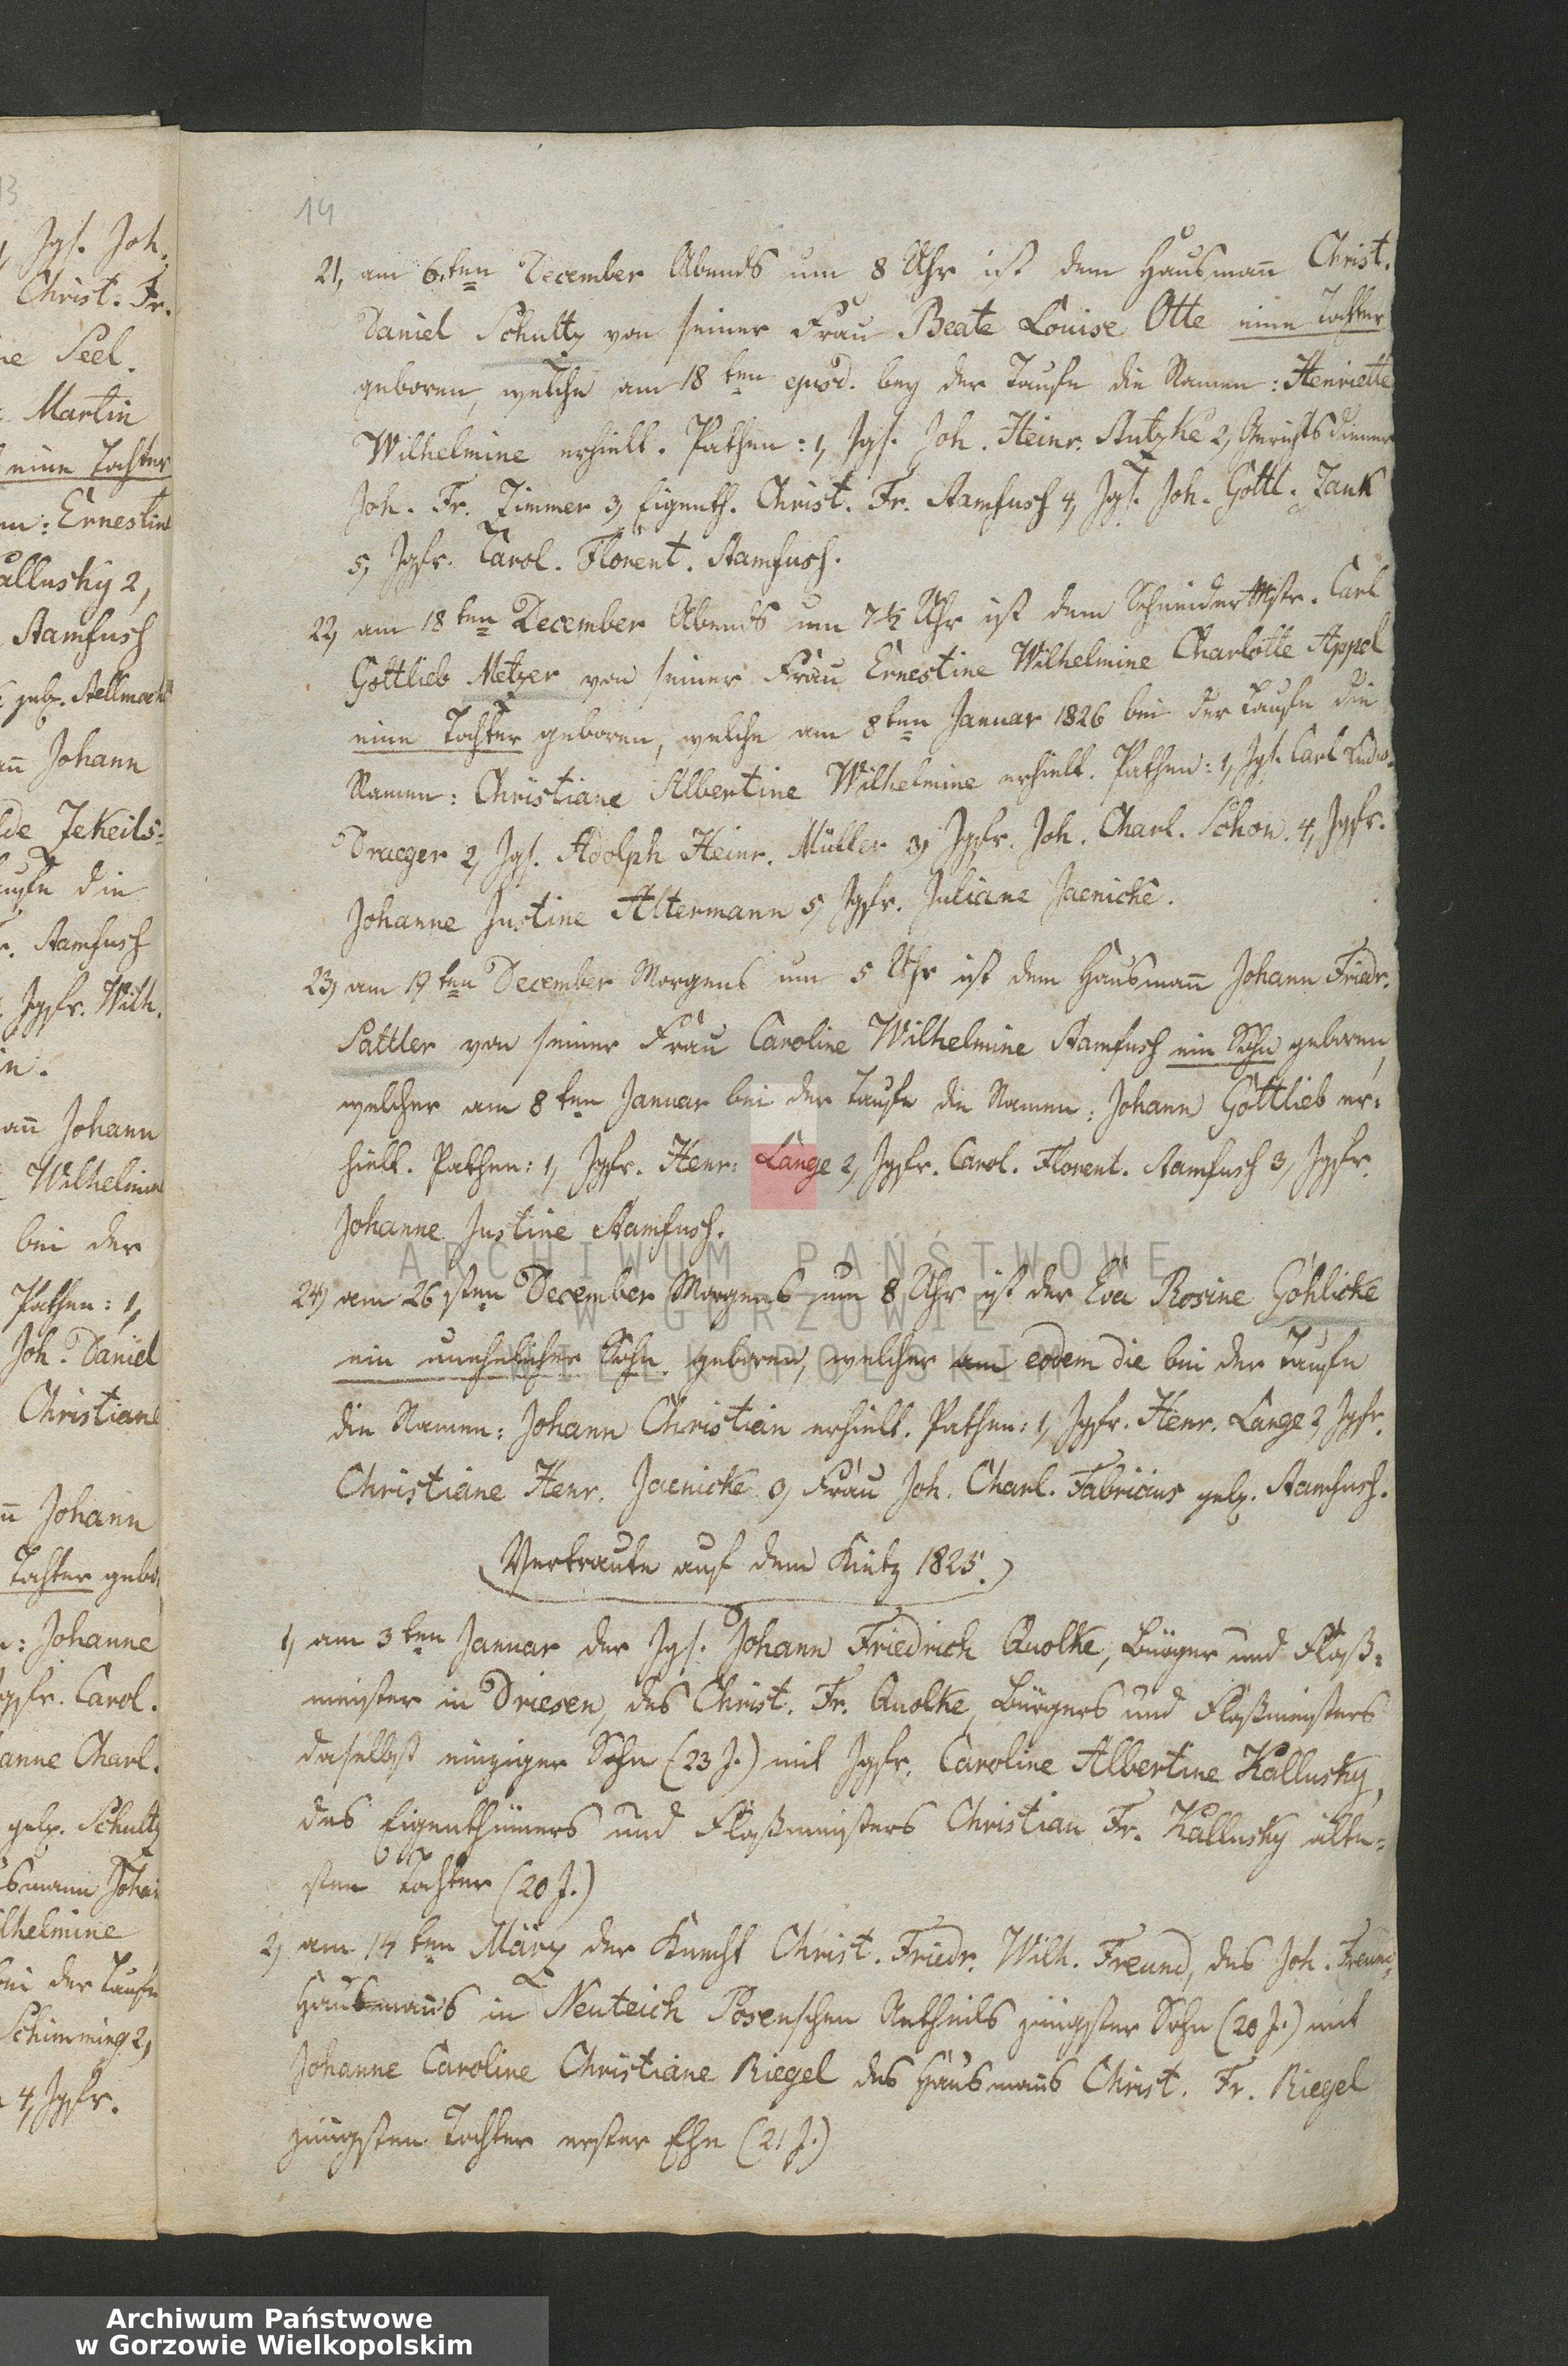 14
21, am 6ten December Abends um 8 Uhr ist dem Hausmañ Christ.
Daniel Schultz von seiner Frau Beate Louise Otte eine Tochter
geboren, welche am 18ten ejusd. bey der Taufe die Namen: Henriette
Wilhelmine erhielt. Pathen: 1, Jgs. Joh. Heinr. 2, Gerichtsdiener
Joh. Fr. Zimmer 3, Eigenth. Christ. Fr. Stamfusch 4, Jgs. Joh. Gottl. Zank
5, Jgfr. Carol. Florent. Stamfusch.
22, am 18ten December Abends um 7½ Uhr ist dem Schneider Mstr. Carl
Gottlieb Metzer von seiner Frau Ernestine Wilhelmine Charlotte Appel
eine Tochter geboren, welche am 8ten Januar 1826 bei der Taufe die
Namen: Christiane Albertine Wilhelmine erhielt. Pathen: 1, Jgs. Carl Ludw.
Draeger 2, Jgs. Adolph Heinr. Müller 3, Jgfr. Joh. Charl. Schon. 4, Jgfr.
Johanne Justine Altermann 5, Jgfr. Juliane Jaenicke.
23, am 19ten December Morgens um 5 Uhr ist dem Hausmañ Johann Friedr.
Sattler von seiner Frau Caroline Wilhelmine Stamfusch ein Sohn geboren,
welcher am 8ten Januar bei der Taufe die Namen: Johann Gottlieb er-
hielt. Pathen: 1, Jgfr. Henr: Lange 2, Jgfr. Carol. Florent. Stamfusch 3, Jgfr.
Johanne Justine Stamfusch.
24, am 26sten December Morgens um 8 Uhr ist der Eva Rosine Göhlicke
ein unehelicher Sohn geboren, welcher am eodem die bei der Taufe
die Namen: Johann Christian erhielt. Pathen: 1, Jgfr. Henr. Lange 2, Jgfr.
Christiane Henr. Jaenicke 3, Frau Joh. Charl. Fabricius geb. Stamfusch.
Vertraute auf dem Kietz 1825.
1, am 3ten Januar der Jgs. Johann Friedrich Quolke, Bürger und Floß-
meister in Driesen, des Christ. Fr. Quolke, Bürgers und Floßmeisters
daselbst einziger Sohn (23 J.) mit Jgfr. Caroline Albertine Kallusky,
des Eigenthümers und Floßmeisters Christian Fr. Kallusky älte-
sten Tochter (20 J.)
2, am 14ten März der Knecht Christ. Friedr. Wilh. Freund, des Joh. Freund,
Hausmañs in Neuteich Posenschen Antheils jüngster Sohn (20 J.) mit
Johanne Caroline Christiane Riegel des Hausmañs Christ. Fr. Riegel
jüngsten Tochter erster Ehe (21 J.)
13
Jgs. Joh.
Christ. Fr.
Seel.
Martin
eine Tochter
Ernestine
allusky 2,
Stamfusch
geb. Stellmach
Johann
Jekeils-
die
Stamfusch
Jgfr. Wilh.
Johann
Wilhelmine
bei der
Pathen: 1,
Joh. Daniel
Christiane
Johann
Tochter gebo
: Johanne
gfr. Carol.
anne Charl.
geb. Schultz
smann Joha
lhelmine
bei der Taufe
Schimming 2,
4, Jgfr.
ARCHIWUM PAŃSTWOWE
W GORZOWIE
WIELKOPOLSKIM
Archiwum Państwowe
w Gorzowie Wielkopolskim